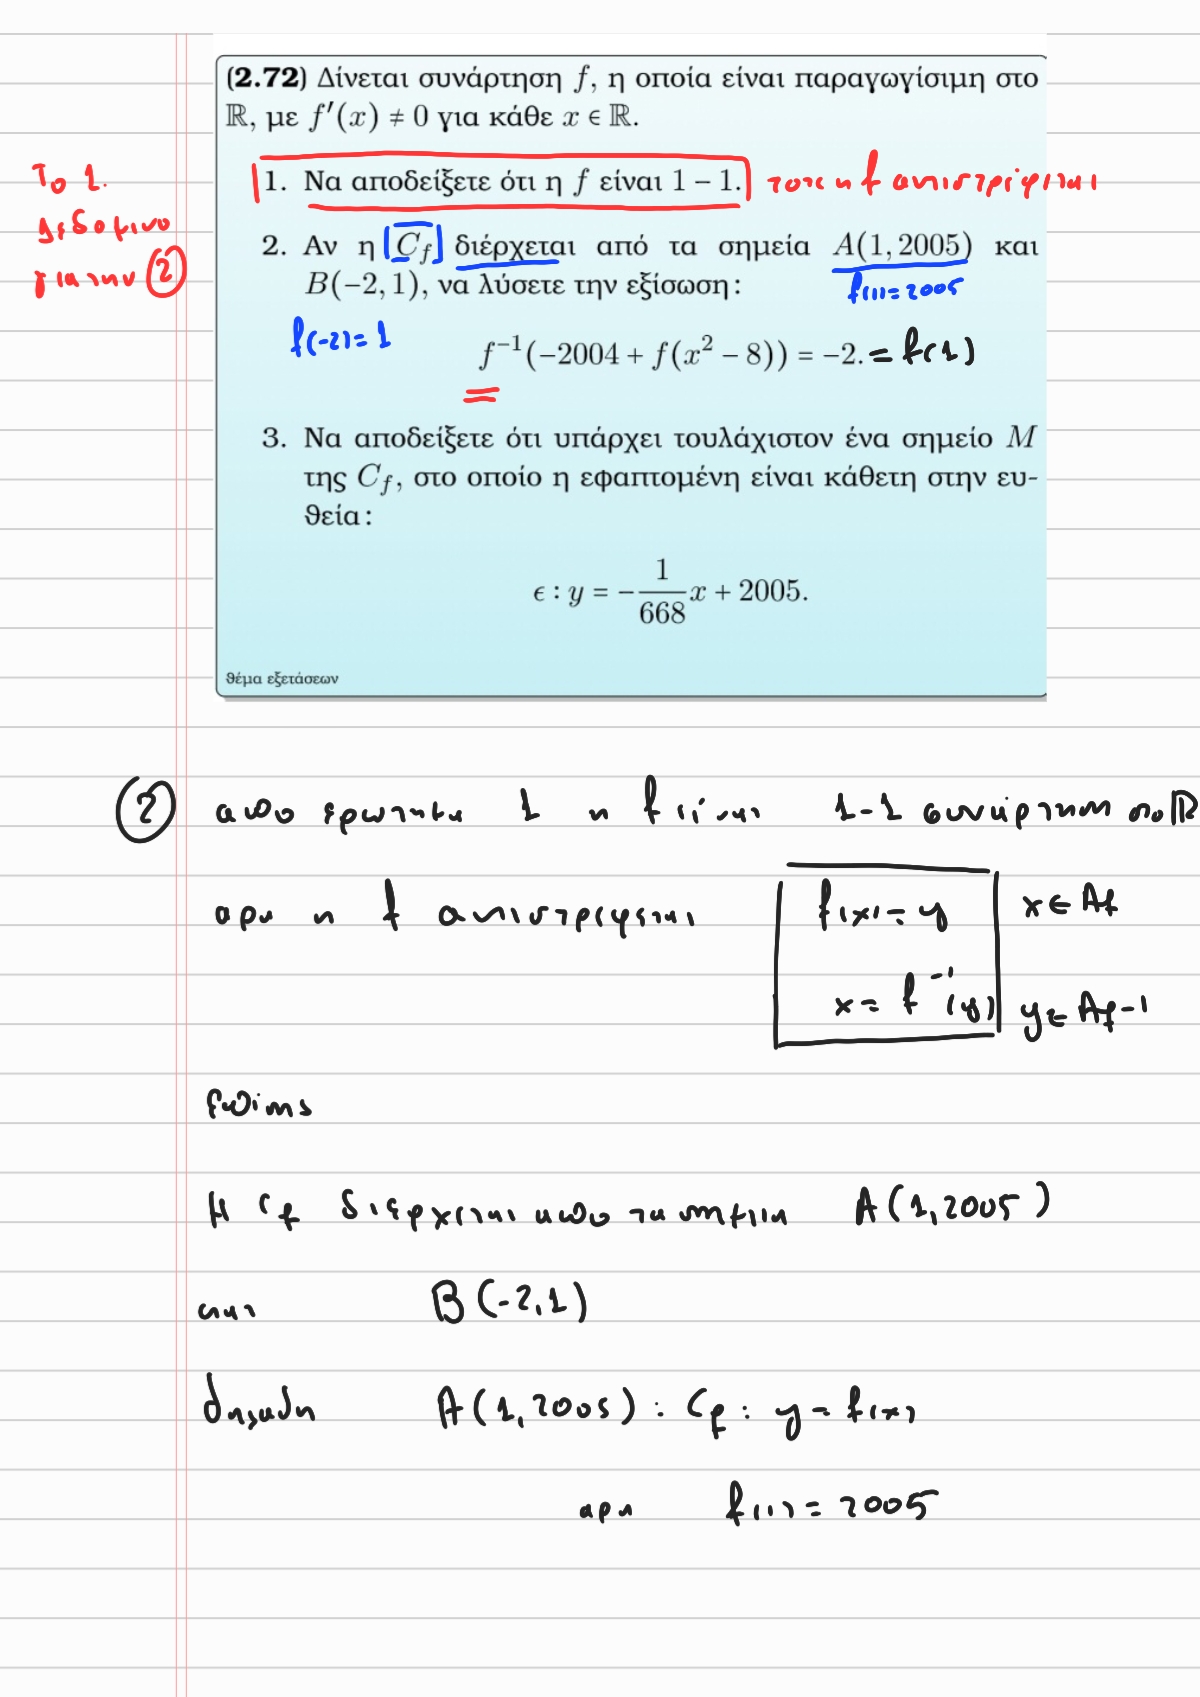 (2.72) Δίνεται συνάρτηση f, η οποία είναι παραγωγίσιμη στο
ℝ, με f′(x) ≠ 0 για κάθε x ∈ ℝ.
Το 1.
δεδομενο
για την ②
1. Να αποδείξετε ότι η f είναι 1 − 1. τοτε η f αντιστρέφεται
2. Αν η [C_f] διέρχεται από τα σημεία A(1, 2005) και
B(−2, 1), να λύσετε την εξίσωση:
f(1)=2005
f(-2)=1
f⁻¹(−2004 + f(x² − 8)) = −2. = f(1)
3. Να αποδείξετε ότι υπάρχει τουλάχιστον ένα σημείο M
της C_f, στο οποίο η εφαπτομένη είναι κάθετη στην ευ-
θεία:
ϵ : y = −1/668 x + 2005.
θέμα εξετάσεων
② απο ερωτημα 1 η f είναι 1-1 συνάρτηση στο ℝ
αρα η f αντιστρεφεται
f(x)=y x ∈ Af
x = f⁻¹(y) y ∈ Af-1
επίσης
Η Cf διερχεται απο τα σημεια A(1,2005)
και B(-2,1)
δηλαδη A(1,2005) : Cf : y=f(x)
αρα f(1)=2005